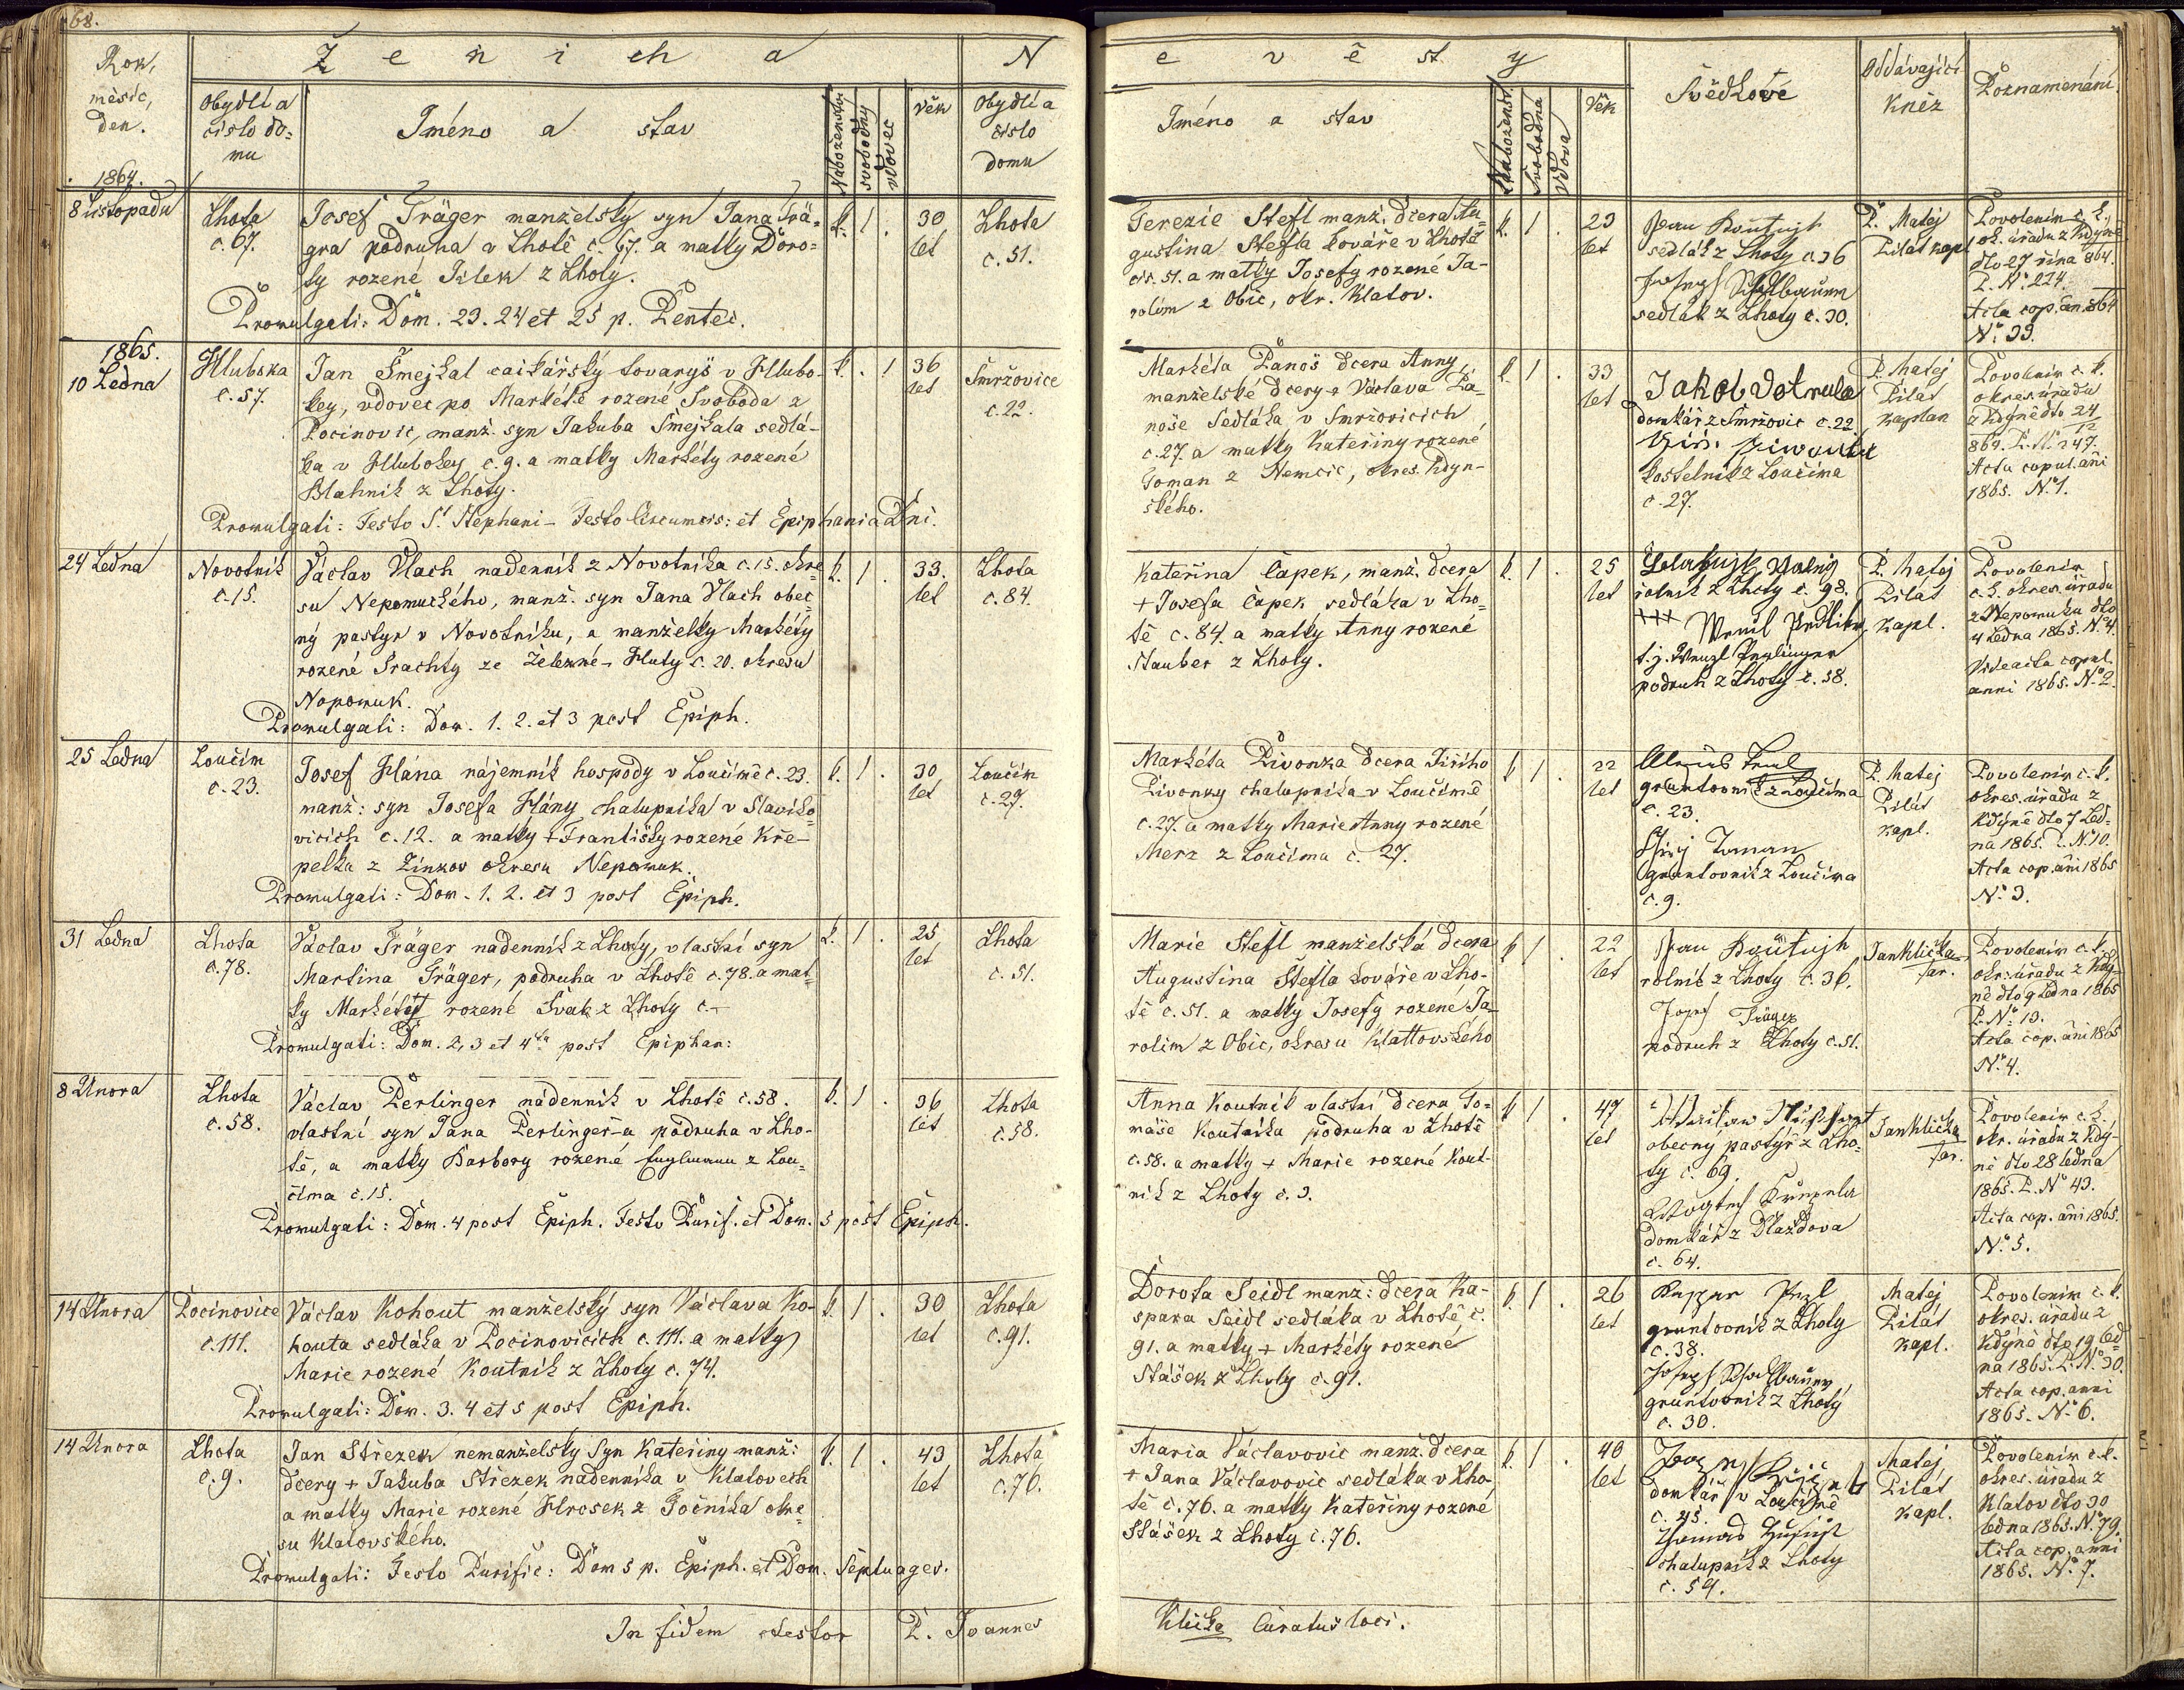 68.
Rok,
měsíc,
den.
1864.
Ženicha
Obydlí a
číslo do=
mu
Jméno a stav
Náboženstvo
svobodný
vdovec
věk
N
Obydlí a
číslo
domu
evěsty
Jméno a stav
Náboženstv.
Svobodná
vdova
Věk
Svědkové
Oddávající
Kněz
Poznamenání
8 Listopadu
Lhota
č. 67.
Josef Träger manželský syn Jana Trä=
gra podruha v Lhotě č. 67. a matky Doro=
ty rozené Jílek z Lhoty.
Promulgati: Dom. 23. 24 et 25 p. Pentec.
k. 1 .
30
let
Lhota
č. 51.
Terezie Stefl manž. dcera Au=
gustina Stefla kováře v Lhotě
čís. 51. a matky Josefy rozené Ja-
rolím z Obic, okr. Klatov.
k. 1 .
23
let
sedlák z Lhoty č. 36
Joseph
sedlák z Lhoty č. 30.
P. Matěj
Pilát kapl
Povolením c. k.
ok. úřadu z Kdyně
dto 27 října 864.
P. No 224.
Acta cop. an. 864
No 33.
1865.
10 Ledna
Hluboka
č. 57.
Jan Smejkal cajkářský tovaryš v Hlubo-
key, vdovec po Markétě rozené Svoboda z
Pocinovic, manž. syn Jakuba Smejkala sedlá-
ka v Hlubokey č. 9. a matky Markéty rozené
Blahnik z Lhoty.
Promulgati: Festo S. Stephani - Festo Circumcis: et Epiphania Dni.
k. . 1
36
let
Smržovice
č. 22.
Markéta Panoš dcera Anny,
manželské dcery + Václava Pa-
noše Sedláka v Smržovicích
č. 27. a matky Kateřiny rozené
Toman z Němčic, okres. Kdyn-
ského.
k. 1 .
33
let
Jakob Votruba
domkář z Smržovic č. 22
Jiří Piwonka
kostelník z Loučima
č. 27.
P. Matěj
Pilát
kaplan
Povolením c. k.
okres. úřadu
z Kdyně dto 24/12
864. P. No 247.
Acta copul. ani
1865. No 1.
24 Ledna
Novotnik
č. 15.
Václav Vlach nadenník z Novotníka č. 15. okre=
su Nepomuckého, manž. syn Jana Vlach obec=
ný pastýr v Novotníku, a manželky Markéty
rozené Prachty ze Železné-Huty č. 20. okresu
Nepomuk.
Promulgati: Dom. 1. 2. et 3 post Epiph.
k. 1 .
33.
let
Lhota
č. 84.
Kateřina Čapek, manž. dcera
+ Josefa Čapek sedláka v Lho=
tě č. 84. a matky Anny rozené
Stauber z Lhoty.
k. 1 .
25
let
rolník z Lhoty č. 98.
+++
t. j. Wenzl Perlinger
podruh z Lhoty č. 58.
P. Matěj
Pilát
kapl.
Povolením
c. k. okres. úřadu
z Nepomuku dto
4 Ledna 1865. No 4.
Vide acta copul.
anni 1865. No 2.
25 Ledna
Loučim
č. 23.
Josef Hána nájemník hospody v Loučimě č. 23.
manž: syn Josefa Hány chalupníka v Slaviko=
vicích č. 12. a matky + Františky rozené Kře-
pelka z Žinkov okresu Nepomuk.
Promulgati: Dom. 1. 2. et 3 post Epiph.
k. 1 .
30
let
Loučim
č. 27.
Markéta Pivonka dcera Jiřího
Pivonky chalupníka v Loučimě
č. 27. a matky Marie Anny rozené
Merz z Loučima č. 27.
k 1 .
22
let
gruntovník z Loučima
č. 23.
Jiřij Toman
gruntovník z Loučima
č. 9.
P. Matěj
Pilát
kapl.
Povolením c. k.
okres. úřadu z
Kdýně dto 7 Led-
na 1865. P. No 10.
Acta cop. ani 1865
No 3.
31 Ledna
Lhota
č. 78.
Václav Träger nadenník z Lhoty, vlastní syn
Martina Träger, podruha v Lhotě č. 78. a mat=
ky Markéty rozené Svek z Lhoty č.-
Promulgati: Dom. 2, 3 et 4ta post Epiphan:
k. 1 .
25
let
Lhota
č. 51.
Marie Stefl manželská dcera
Augustina Stefla kováře v Lho-
tě č. 51. a matky Josefy rozené Ja-
rolím z Obic, okresu Klattovského
k 1 .
22
let
rolník z Lhoty č. 36.
Josef Träger
podruh z Lhoty č. 51.
Jan Klička
far.
Povolením c. k.
okr. úřadu z Kdy=
ně dto 9 Ledna 1865
P. No 13.
Acta cop. ani 1865
No 4.
8 Unora
Lhota
č. 58.
Václav Perlinger nádenník v Lhotě č. 58.
vlastní syn Jana Perlinger-a podruha v Lho-
tě, a matky Barbory rozené Englmann z Lou=
čima č. 15.
Promulgati: Dom. 4 post Epiph. Festo Purif. et Dom. 5 post Epiph.
k. 1 .
36
let
Lhota
č. 58.
Anna Koutnik vlastní dcera To=
máše Koutníka podruha v Lhotě
č. 58. a matky + Marie rozené Kout-
nik z Lhoty č. 3.
k 1 .
47
let
obecný pastýř z Lho=
ty č. 69.
domkář z Dlaždova
č. 64.
Jan Klička
far.
Povolením c. k.
okr. úřadu z Kdy-
ně dto 28 ledna
1865. P. No 43.
Acta cop. ani 1865.
No 5.
14 Unora
Pocinovice
č. 111.
Václav Kohout manželský syn Václava Ko-
houta sedláka v Pocinovicích č. 111. a matky
Marie rozené Koutnik z Lhoty č. 74.
Promulgati: Dom. 3. 4 et 5 post Epiph.
k. 1 .
30
let
Lhota
č. 91.
Dorota Seidl manž: dcera Ka-
spara Seidl sedláka v Lhotě č.
91. a matky + Markéty rozené
Stášek z Lhoty č. 91.
k 1 .
26
let
gruntovník z Lhoty
č. 38.
Joseph
gruntovník z Lhoty
č. 30.
Matěj
Pilát
kapl.
Povolením c. k.
okres. úřadu z
Kdýně dto 19 led=
na 1865. P. No 30.
Acta cop. anni
1865. No 6.
14 Unora
Lhota
č. 9.
Jan Střezek nemanželský Syn Kateřiny manž:
dcery + Jakuba Střezek nadenníka v Klatovech
a matky Marie rozené Hrosek z Točníka okre=
su Klatovského.
Promulgati: Festo Purific: Dom 5 p. Epiph. et Dom. Septuages.
k. 1 .
43
let
Lhota
č. 76.
Maria Václavovic manž. dcera
+ Jana Václavovic sedláka v Lho
tě č. 76. a matky Kateřiny rozené
Stášek z Lhoty č. 76.
k 1 .
40
let
domkář v Loučimě
č. 45.
chalupník z Lhoty
č. 54.
Matěj
Pilát
kapl.
Povolením c. k.
okres. úřadu z
Klatov dto 30
ledna 1865. No 79.
Acta cop. anni
1865. No 7.
In fidem testor P. Joannes
Klička Curatus loci.